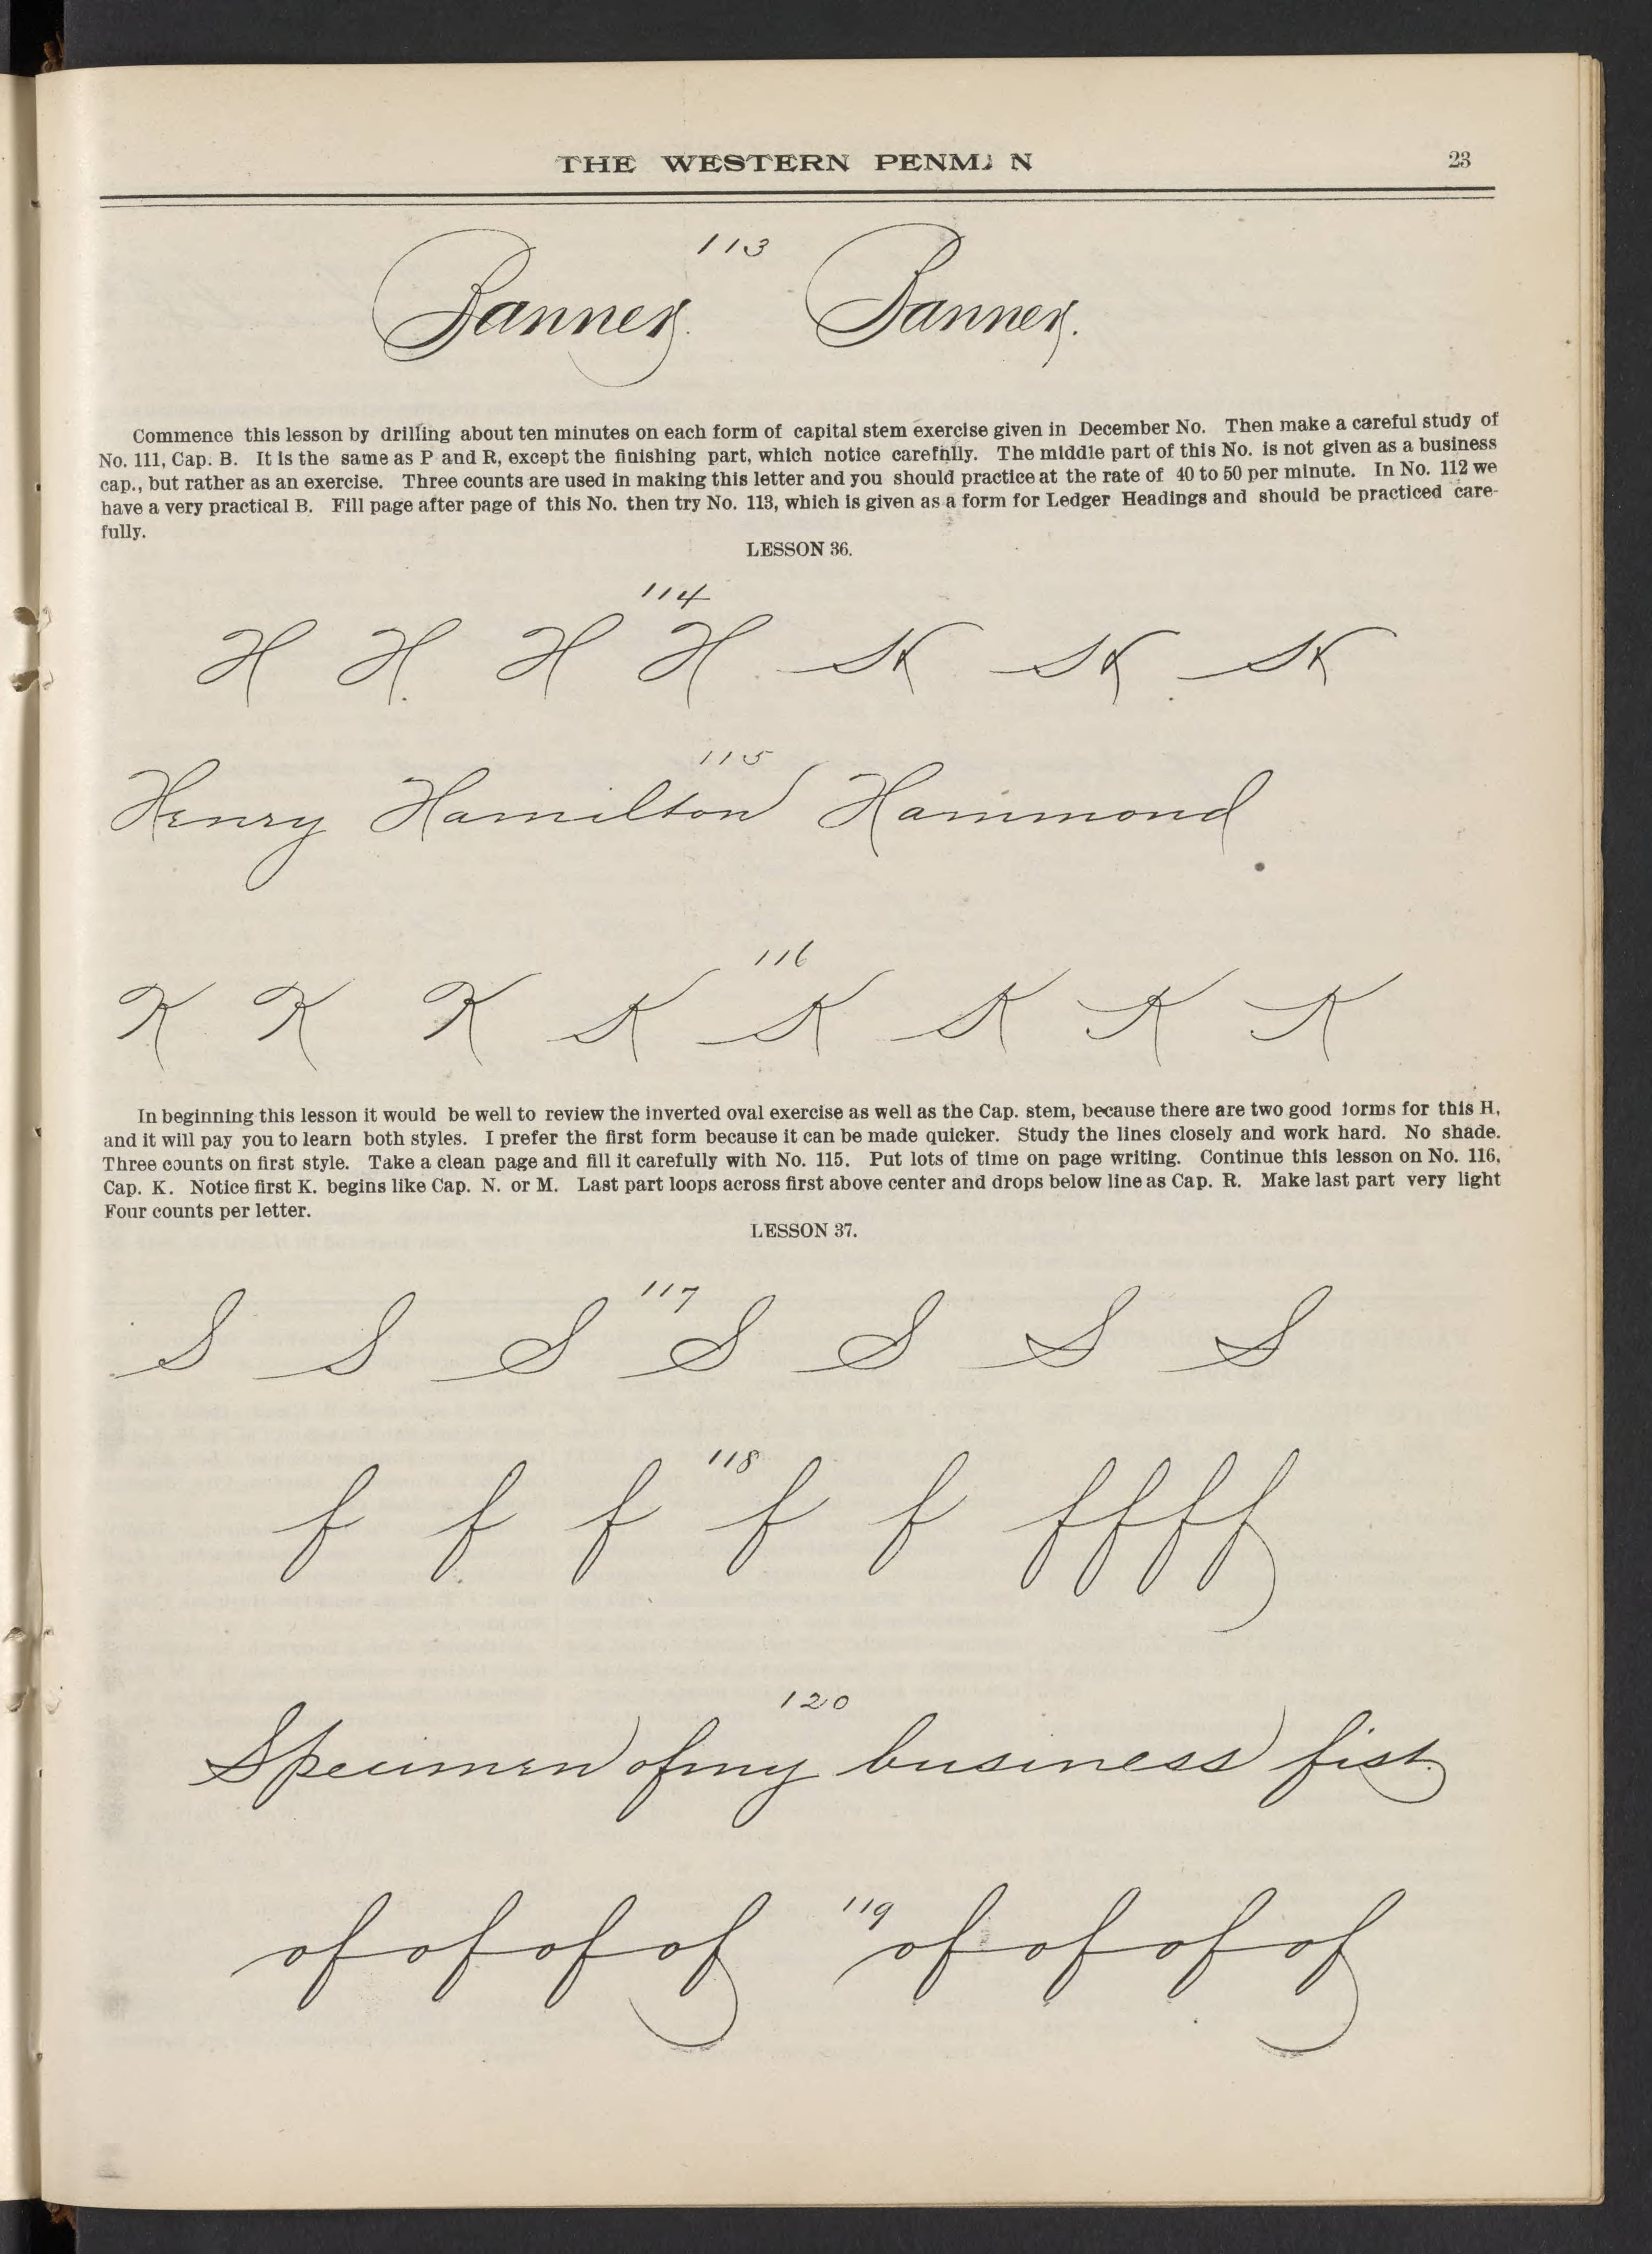 THE WESTERN PENM N 23
113
Banner. Banner.
Commence this lesson by drilling about ten minutes on each form of capital stem exercise given in December No. Then make a careful study of
No. 111, Cap. B. It is the same as P and R, except the finishing part, which notice carefnlly. The middle part of this No. is not given as a business
cap., but rather as an exercise. Three counts are used in making this letter and you should practice at the rate of 40 to 50 per minute. In No. 112 we
have a very practical B. Fill page after page of this No. then try No. 113, which is given as a form for Ledger Headings and should be practiced care-
fully.
LESSON 36.
114
H H H H K K K
115
Henry Hamilton Hammond
116
K K K K K K K K
In beginning this lesson it would be well to review the inverted oval exercise as well as the Cap. stem, because there are two good forms for this H,
and it will pay you to learn both styles. I prefer the first form because it can be made quicker. Study the lines closely and work hard. No shade.
Three counts on first style. Take a clean page and fill it carefully with No. 115. Put lots of time on page writing. Continue this lesson on No. 116,
Cap. K. Notice first K. begins like Cap. N. or M. Last part loops across first above center and drops below line as Cap. R. Make last part very light
Four counts per letter.
LESSON 37.
117
S S S S S S S
118
f f f f f ffff
120
Specimen of my business fist.
119
of of of of of of of of